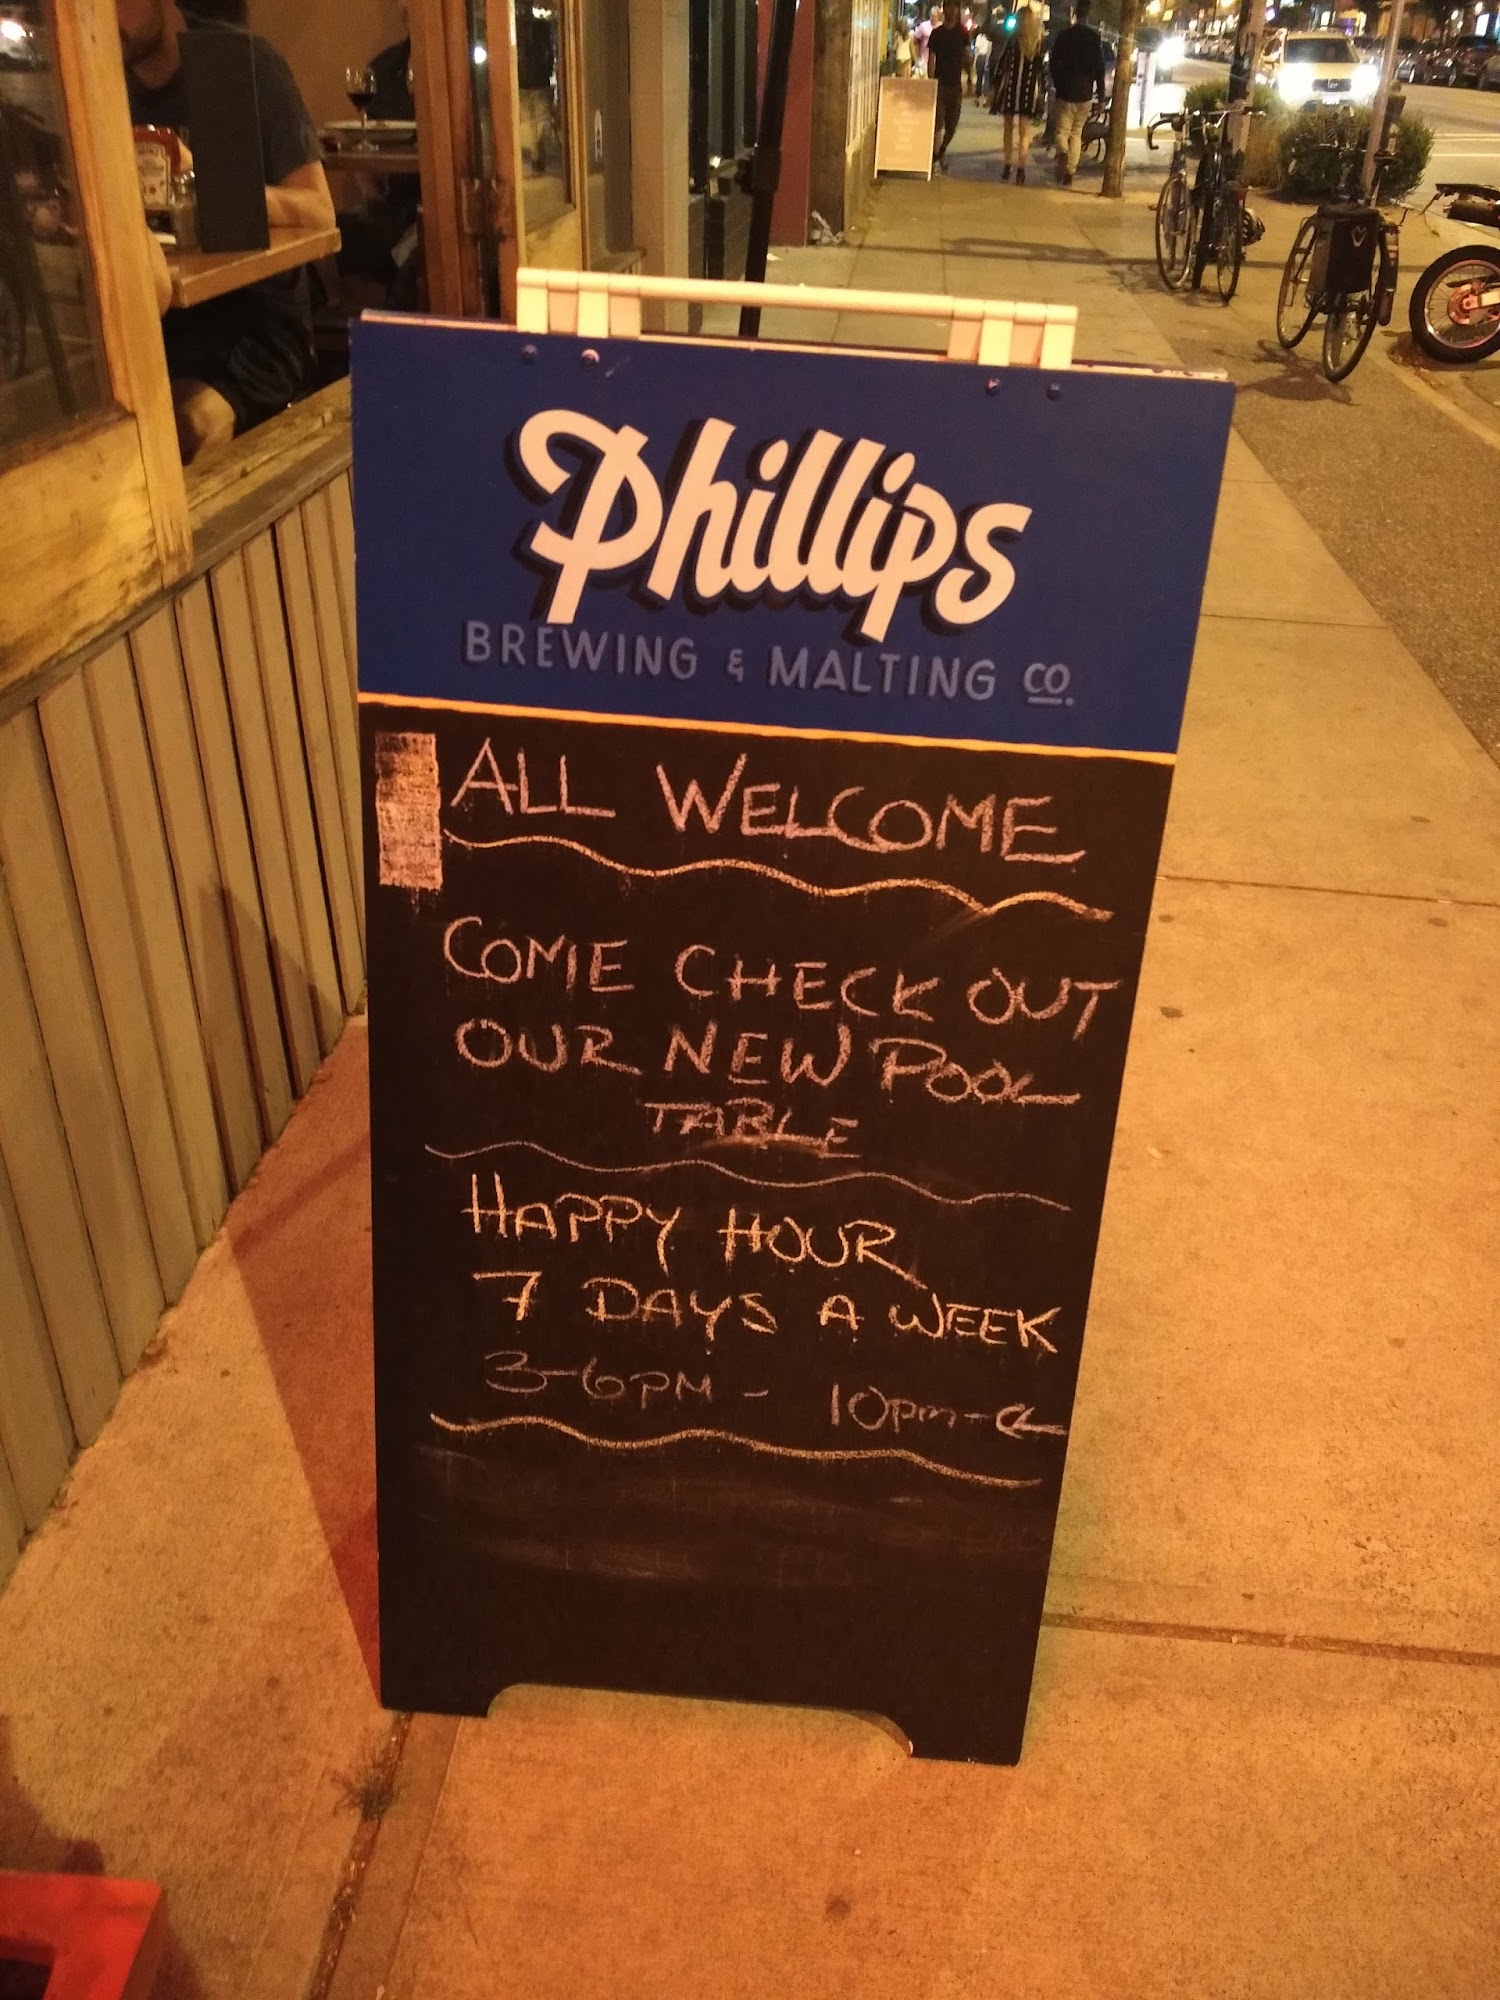 Phillips
BREWING & MALTING CO.
ALL WELCOME
COME CHECK OUT
OUR NEW POOL
TABLE
HAPPY HOUR
7 DAYS A WEEK
3-6PM - 10pm-CL